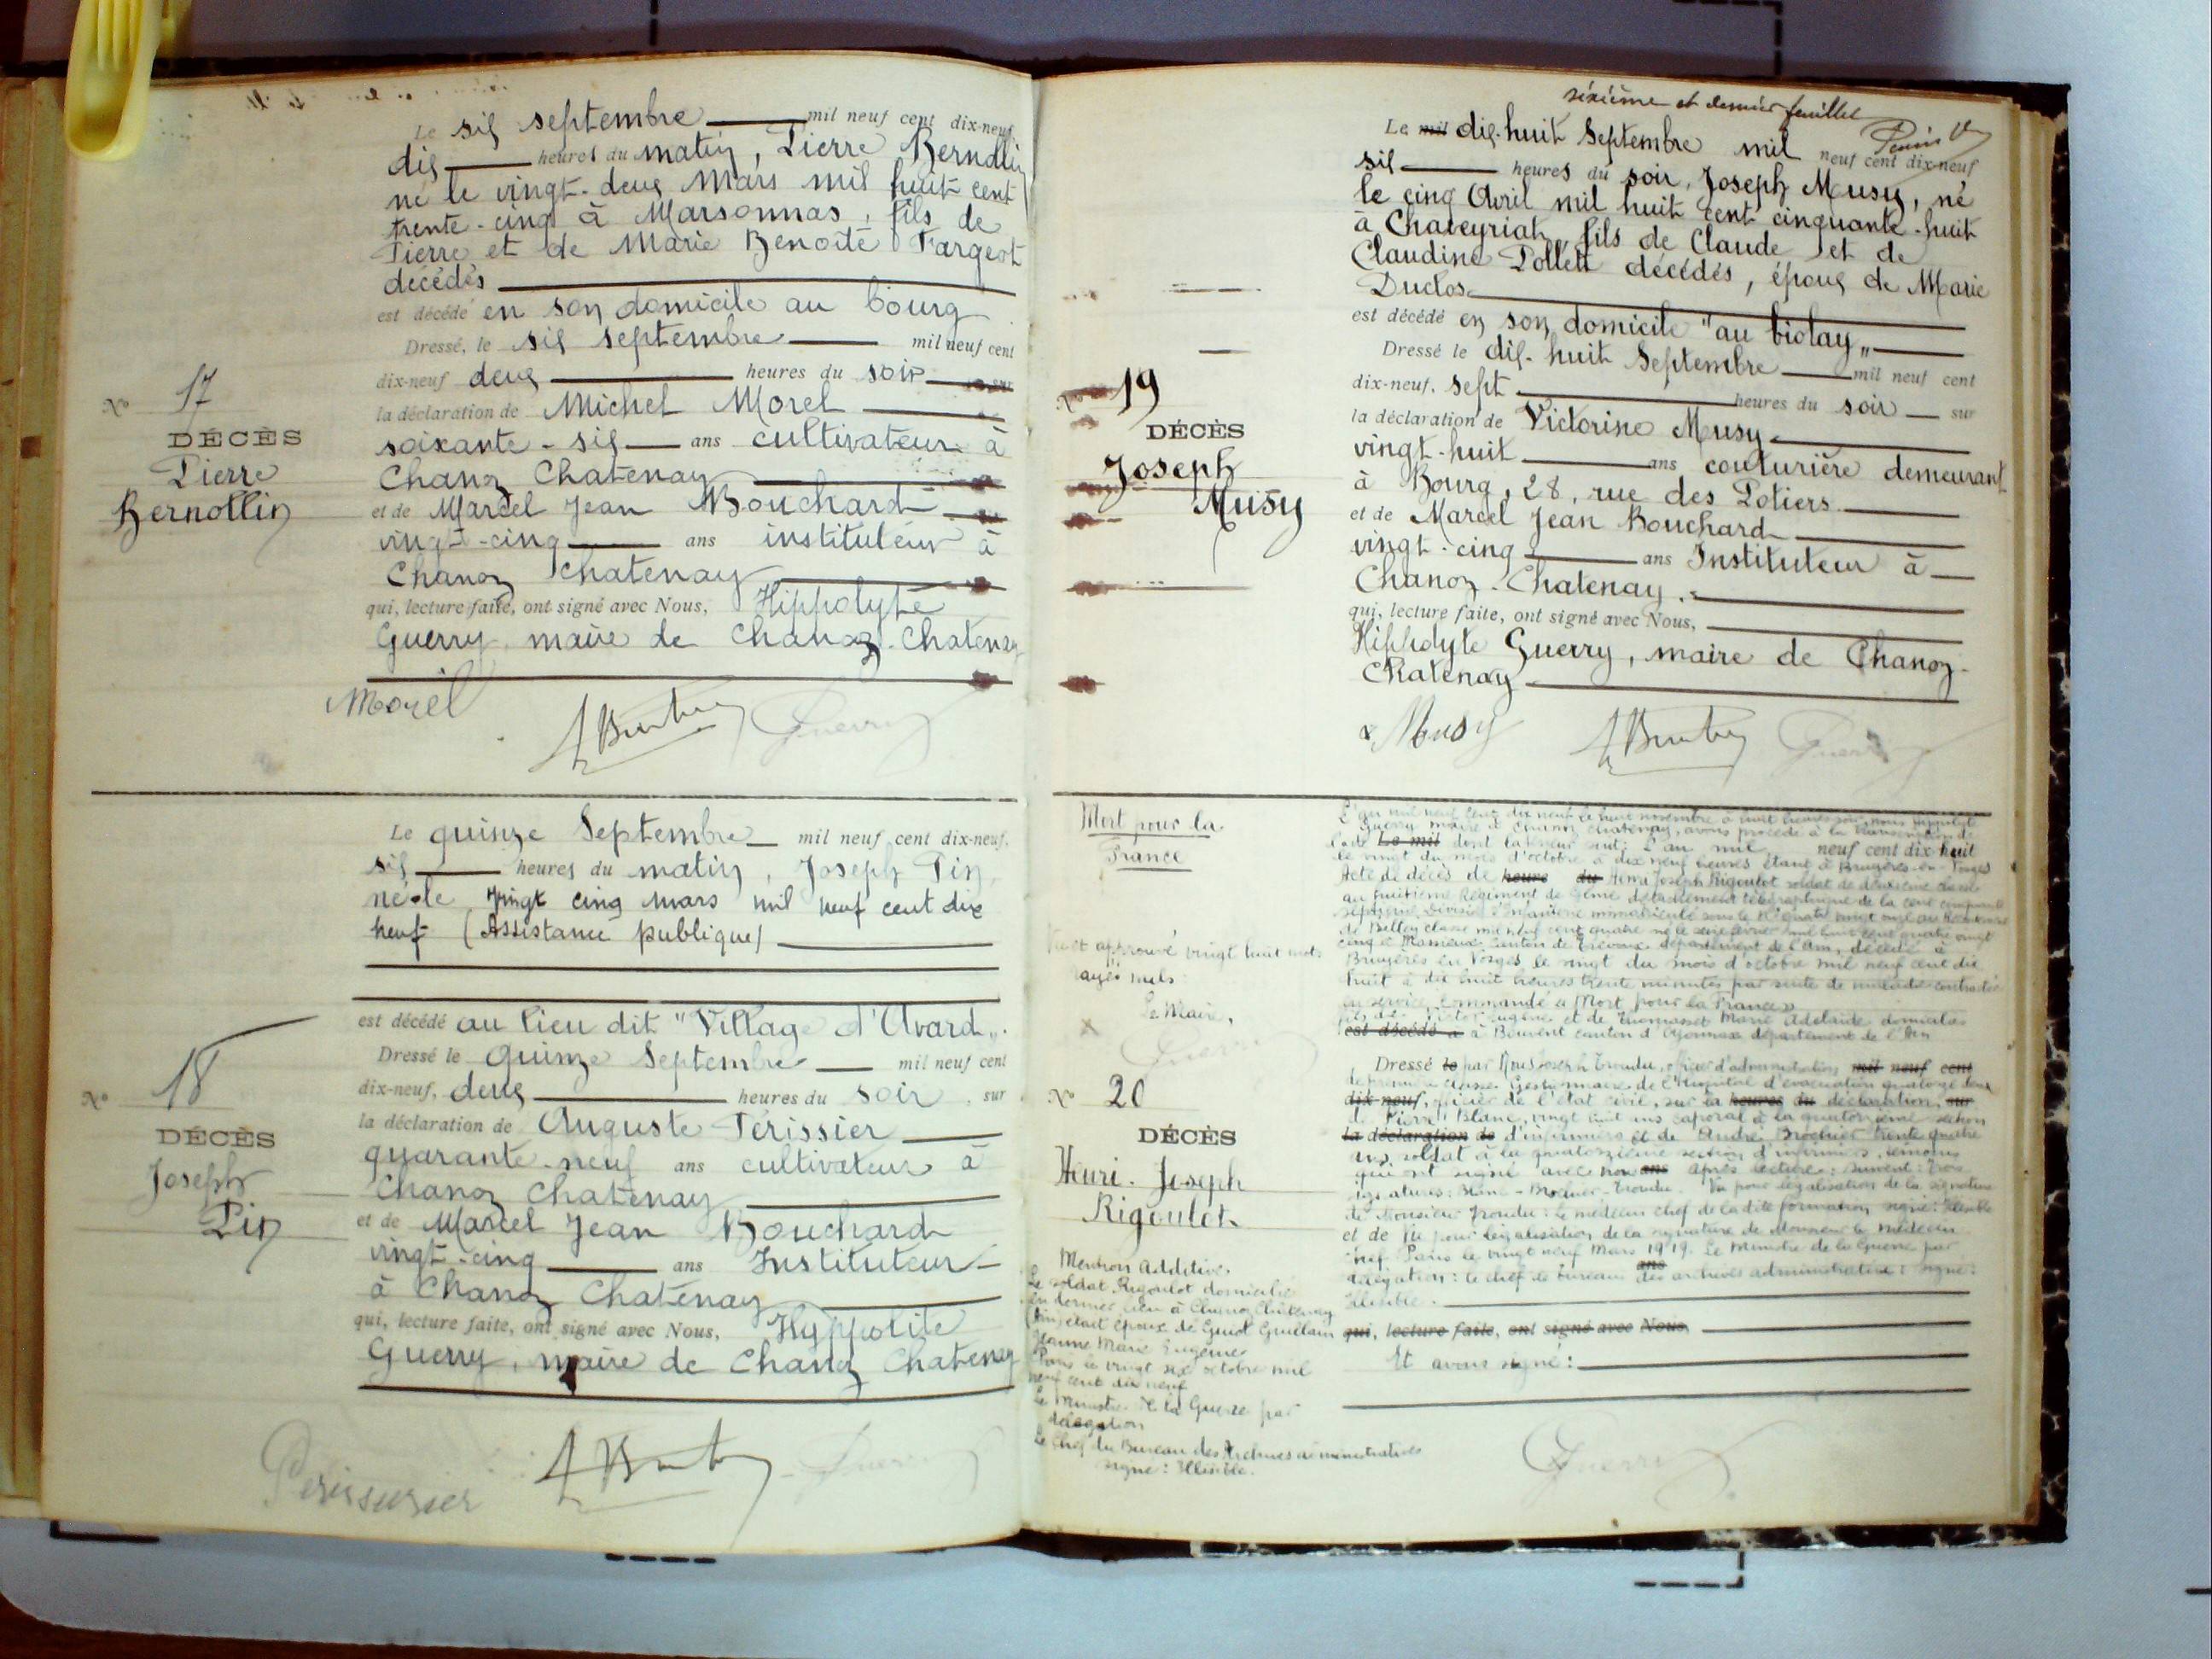 Le six septembre mil neuf cent dix-neuf,
dix heures du matin, Pierre Bernollin
né le vingt-deux Mars mil huit cent
trente-cinq à Marsonnas, fils de
Pierre et de Marie Benoite Fargeot
décédés
est décédé en son domicile au bourg
Dressé, le six septembre mil neuf cent
dix-neuf deux heures du soir sur
la déclaration de Michel Morel
soixante-six ans cultivateur à
Chanoz Chatenay
et de Marcel Jean Bouchard
vingt-cinq ans instituteur à
Chanoz Chatenay
qui, lecture faite, ont signé avec Nous, Hippolyte
Guerry, maire de Chanoz-Chatenay
No 17
DÉCÈS
Pierre
Bernollin
Morel Guerry
Le quinze Septembre mil neuf cent dix-neuf,
six heures du matin, Joseph Pin,
né le vingt cinq mars mil neuf cent dix
neuf (Assistance publique)
est décédé au lieu dit "Village d'Avard".
Dressé le quinze Septembre mil neuf cent
dix-neuf, deux heures du soir, sur
la déclaration de Auguste Périssier
quarante-neuf ans cultivateur à
Chanoz Chatenay
et de Marcel Jean Bouchard
vingt-cinq ans Instituteur
à Chanoz Chatenay
qui, lecture faite, ont signé avec Nous, Hyppolite
Guerry, maire de Chanoz Chatenay
No 18
DÉCÈS
Joseph
Pin
Guerry
sixième et dernier feuillet
Le mil dix-huit Septembre mil neuf cent dix-neuf
six heures du soir, Joseph Musy, né
le cinq Avril mil huit cent cinquante-huit
à Chaveyriat, fils de Claude et de
Claudine Pollet décédés, époux de Marie
Duclos
est décédé en son domicile "au biolay"
Dressé le dix-huit Septembre mil neuf cent
dix-neuf, sept heures du soir sur
la déclaration de Victorine Musy
vingt-huit ans couturière demeurant
à Bourg, 28, rue des Potiers
et de Marcel Jean Bouchard
vingt-cinq ans Instituteur à
Chanoz-Chatenay.
qui, lecture faite, ont signé avec Nous,
Hippolyte Guerry, maire de Chanoz-
Chatenay
No 19
DÉCÈS
Joseph
Musy
Musy Guerry
Mort pour la
France
approuvé vingt huit mots
rayés nuls
Le Maire,
Guerry
No 20
DÉCÈS
Henri-Joseph
Rigoulot
Mention additive.
Le soldat Rigoulot domicilié
en dernier lieu à Chanoz Chatenay
(Ain) était époux de Guiot Guillain
Jeanne Marie Eugénie
Paris le vingt six octobre mil
neuf cent dix neuf
Le Ministre de la Guerre par
délégation
Le Chef du Bureau des Archives administratives
signé: Illisible.
L'an mil neuf cent dix neuf le huit novembre à huit heures soir, nous Hippolyte
Guerry maire de Chanoz Chatenay, avons procédé à la transcription de
l'acte Le mil dont la teneur suit: L'an mil neuf cent dix-huit
le vingt du mois d'octobre à dix neuf heures étant à Bruyères en Vosges
Acte de décès de heure du Henri Joseph Rigoulot soldat de deuxième classe
au huitième Régiment de Génie détachement télégraphique de la cent cinquante
septième Division d'infanterie immatriculé sous le No quatre vingt onze au Recrutement
de Belley classe mil neuf cent quatre né le seize février mil huit cent quatre vingt
cinq à Massieux canton de Trévoux département de l'Ain, décédé à
Bruyères en Vosges le vingt du mois d'octobre mil neuf cent dix
huit à dix huit heures trente minutes par suite de maladie contractée
en service commandé "Mort pour la France"
fils de Victor Eugène et de Thomasset Marie Adelaïde domiciliés
est décédé à à Bouvent canton d'Oyonnax département de l'Ain
Dressé le par officier d'administration mil neuf cent
de première classe Gestionnaire de l'Hôpital d'évacuation quatorze deux
dix-neuf, officier de l'état civil, sur la heures du déclaration, sur
de Pierre Blanc, vingt huit ans caporal à la quatorzième section
la déclaration de d'infirmiers et de André Brochier trente quatre
ans, soldat à la quatorzième section d'infirmiers, témoins
qui ont signé avec nous ans après lecture: Suivent: trois
signatures: Blanc - Brochier - Trondu. Vu pour légalisation de la signature
de Monsieur Trondu: le médecin chef de la dite formation signé: Illisible
et de Vu pour légalisation de la signature de Monsieur le médecin
chef Paris le vingt neuf Mars 1919. Le Ministre de la Guerre par
ans
délégation: le chef de bureau des archives administratives: signé:
Illisible.
qui, lecture faite, ont signé avec Nous,
Et avons signé:
Guerry